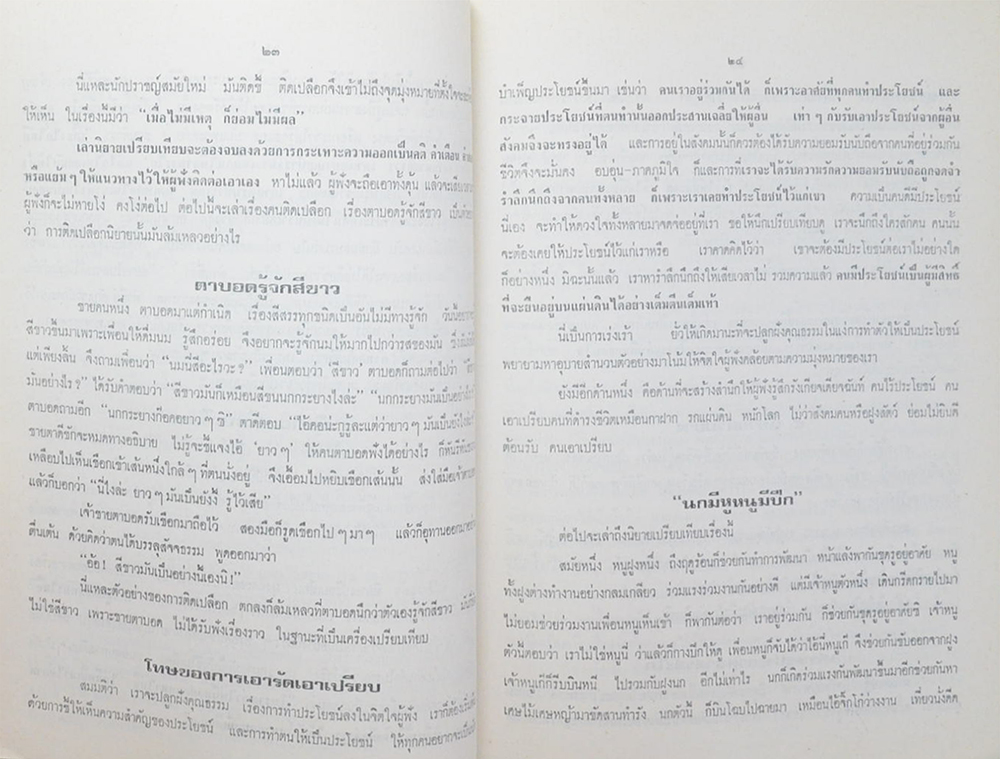 ๒๓
นี่แหละนักปราชญ์สมัยใหม่ มันติดชื่อ ติดเปลือกจึงเข้าไม่ถึงจุดมุ่งหมายที่ตั้งใจจะ
ให้เห็น ในเรื่องนี้มีว่า “เมื่อไม่มีเหตุ ก็ย่อมไม่มีผล”
เล่านิยายเปรียบเทียบจะต้องจบลงด้วยการกระเทาะความออกเป็นคติ คำเตือน
หรือแย้ม ๆ ให้แนวทางไว้ให้ผู้ฟังคิดต่อเอาเอง หาไม่แล้ว ผู้ฟังจะถือเอาทั้งดุ้น แล้วจะ
ผู้ฟังก็จะไม่หายโง่ คงโง่ต่อไป ต่อไปนี้จะเล่าเรื่องคนติดเปลือก เรื่องตาบอดรู้จักสีขาว
ว่า การติดเปลือกนิยายนั้นมันล้มเหลวอย่างไร
ตาบอดรู้จักสีขาว
ชายคนหนึ่ง ตาบอดมาแต่กำเนิด เรื่องสีสรรทุกชนิดเป็นอันไม่มีทางรู้จัก วันนั้น
สีขาวขึ้นมาเพราะเพื่อนให้ดื่มนม รู้สึกอร่อย จึงอยากจะรู้จักนมให้มากไปกว่ารสของมัน
แต่เพียงลิ้น จึงถามเพื่อนว่า “นมนี่สีอะไรวะ?” เพื่อนตอบว่า ‘สีขาว’ ตาบอดก็ถามต่อไปว่า
มันอย่างไร?” ได้รับคำตอบว่า “สีขาวมันก็เหมือนสีขนนกกระยางไงล่ะ” “นกกระยางมันเป็น
ตาบอดถามอีก “นกกระยางก็คอยาว ๆ ซิ” ตาดีตอบ “ไอ้คอน่ะกูรู้ละแต่ว่ายาว ๆ มันเป็นยังไง
ชายตาดีชักจะหมดทางอธิบาย ไม่รู้จะชี้แจงไอ้ ‘ยาว ๆ’ ให้คนตาบอดฟังได้อย่างไร
เหลือบไปเห็นเชือกเข้าเส้นหนึ่งใกล้ ๆ ที่ตนนั่งอยู่ จึงเอื้อมไปหยิบเชือกเส้นนั้น ส่งใส่มือ
แล้วก็บอกว่า “นี่ไงล่ะ ยาว ๆ มันเป็นยังงี้ รู้ไว้เสีย”
เจ้าชายตาบอดรับเชือกมาถือไว้ สองมือก็รูดเชือกไป ๆ มา ๆ แล้วก็อุทานออกมา
ตื่นเต้น ด้วยคิดว่าตนได้บรรลุสัจจธรรม พูดออกมาว่า
“อ้อ! สีขาวมันเป็นอย่างนี้เองนิ!”
นี่แหละตัวอย่างของการติดเปลือก ตกลงก็ล้มเหลวที่ตาบอดนึกว่าตัวเองรู้จักสีขาว
ไม่ใช่สีขาว เพราะชายตาบอด ไม่ได้รับฟังเรื่องราว ในฐานะที่เป็นเครื่องเปรียบเทียบ
โทษของการเอารัดเอาเปรียบ
สมมติว่า เราจะปลูกฝังคุณธรรม เรื่องการทำประโยชน์ลงในจิตใจผู้ฟัง เราก็ต้อง
ด้วยการชี้ให้เห็นความสำคัญของประโยชน์ และการทำตนให้เป็นประโยชน์ ให้ทุกคนอยากจะ
๒๔
บำเพ็ญประโยชน์ขึ้นมา เช่นว่า คนเราอยู่ร่วมกันได้ ก็เพราะอาศัยที่ทุกคนทำประโยชน์ และ
กระจายประโยชน์ที่ตนทำนั้นออกประสานเฉลี่ยให้ผู้อื่น เท่า ๆ กับรับเอาประโยชน์จากผู้อื่น
สังคมจึงจะทรงอยู่ได้ และการอยู่ในสังคมนั้นก็ควรต้องได้รับความยอมรับนับถือจากคนที่อยู่ร่วมกัน
ชีวิตจึงจะมั่นคง อบอุ่น-ภาคภูมิใจ ก็และการที่เราจะได้รับความรักความยอมรับนับถือถูกจดจำ
รำลึกนึกถึงจากคนทั้งหลาย ก็เพราะเราเคยทำประโยชน์ไว้แก่เขา ความเป็นคนดีมีประโยชน์
นี่เอง จะทำให้ดวงใจทั้งหลายมาจดจ่ออยู่ที่เรา ขอให้นึกเปรียบเทียบดู เราจะนึกถึงใครสักคน คนนั้น
จะต้องเคยให้ประโยชน์ไว้แก่เราหรือ เราคาดคิดไว้ว่า เขาจะต้องมีประโยชน์ต่อเราไม่อย่างใด
ก็อย่างหนึ่ง มิฉะนั้นแล้ว เราหารำลึกนึกถึงให้เสียเวลาไม่ รวมความแล้ว คนมีประโยชน์เป็นผู้มีสิทธิ์
ที่จะยืนอยู่บนแผ่นดินได้อย่างเต็มตีนเต็มเท้า
นี่เป็นการเร่งเร้า ยั่วให้เกิดมานะที่จะปลูกฝังคุณธรรมในแง่การทำตัวให้เป็นประโยชน์
พยายามหาอุบายสำนวนตัวอย่างมาโน้มให้จิตใจผู้ฟังคล้อยตามความมุ่งหมายของเรา
ยังมีอีกด้านหนึ่ง คือด้านที่จะสร้างสำนึกให้ผู้ฟังรู้สึกรังเกียจเดียดฉันท์ คนไร้ประโยชน์ คน
เอาเปรียบคนที่ดำรงชีวิตเหมือนกาฝาก รกแผ่นดิน หนักโลก ไม่ว่าสังคมคนหรือฝูงสัตว์ ย่อมไม่ยินดี
ต้อนรับ คนเอาเปรียบ
“นกมีหูหนูมีปีก”
ต่อไปจะเล่าถึงนิยายเปรียบเทียบเรื่องนี้
สมัยหนึ่ง หนูฝูงหนึ่ง ถึงฤดูร้อนก็ช่วยกันทำการพัฒนา หน้าแล้งพากันขุดรูอยู่อาศัย หนู
ทั้งฝูงต่างทำงานอย่างกลมเกลียว ร่วมแรงร่วมงานกันอย่างดี แต่มีเจ้าหนูตัวหนึ่ง เดินกรีดกรายไปมา
ไม่ยอมช่วยร่วมงานเพื่อนหนูเห็นเข้า ก็พากันต่อว่า เราอยู่ร่วมกัน ก็ช่วยกันขุดรูอยู่อาศัยซิ เจ้าหนู
ตัวนั้นตอบว่า เราไม่ใช่หนูนี่ ว่าแล้วก็กางปีกให้ดู เพื่อนหนูก็จับได้ว่าไอ้นี่หนูเก๊ จึงช่วยกันขับออกจากฝูง
เจ้าหนูเก๊ก็รีบบินหนี ไปรวมกับฝูงนก อีกไม่เท่าไร นกก็เกิดร่วมแรงกันพัฒนาขึ้นมาอีกช่วยกันหา
เศษไม้เศษหญ้ามาขัดสานทำรัง นกตัวนี้ ก็บินโฉบไปฉายมา เหมือนไอ้จิ๊กโก๋ว่างงาน เที่ยวนั่งดีด